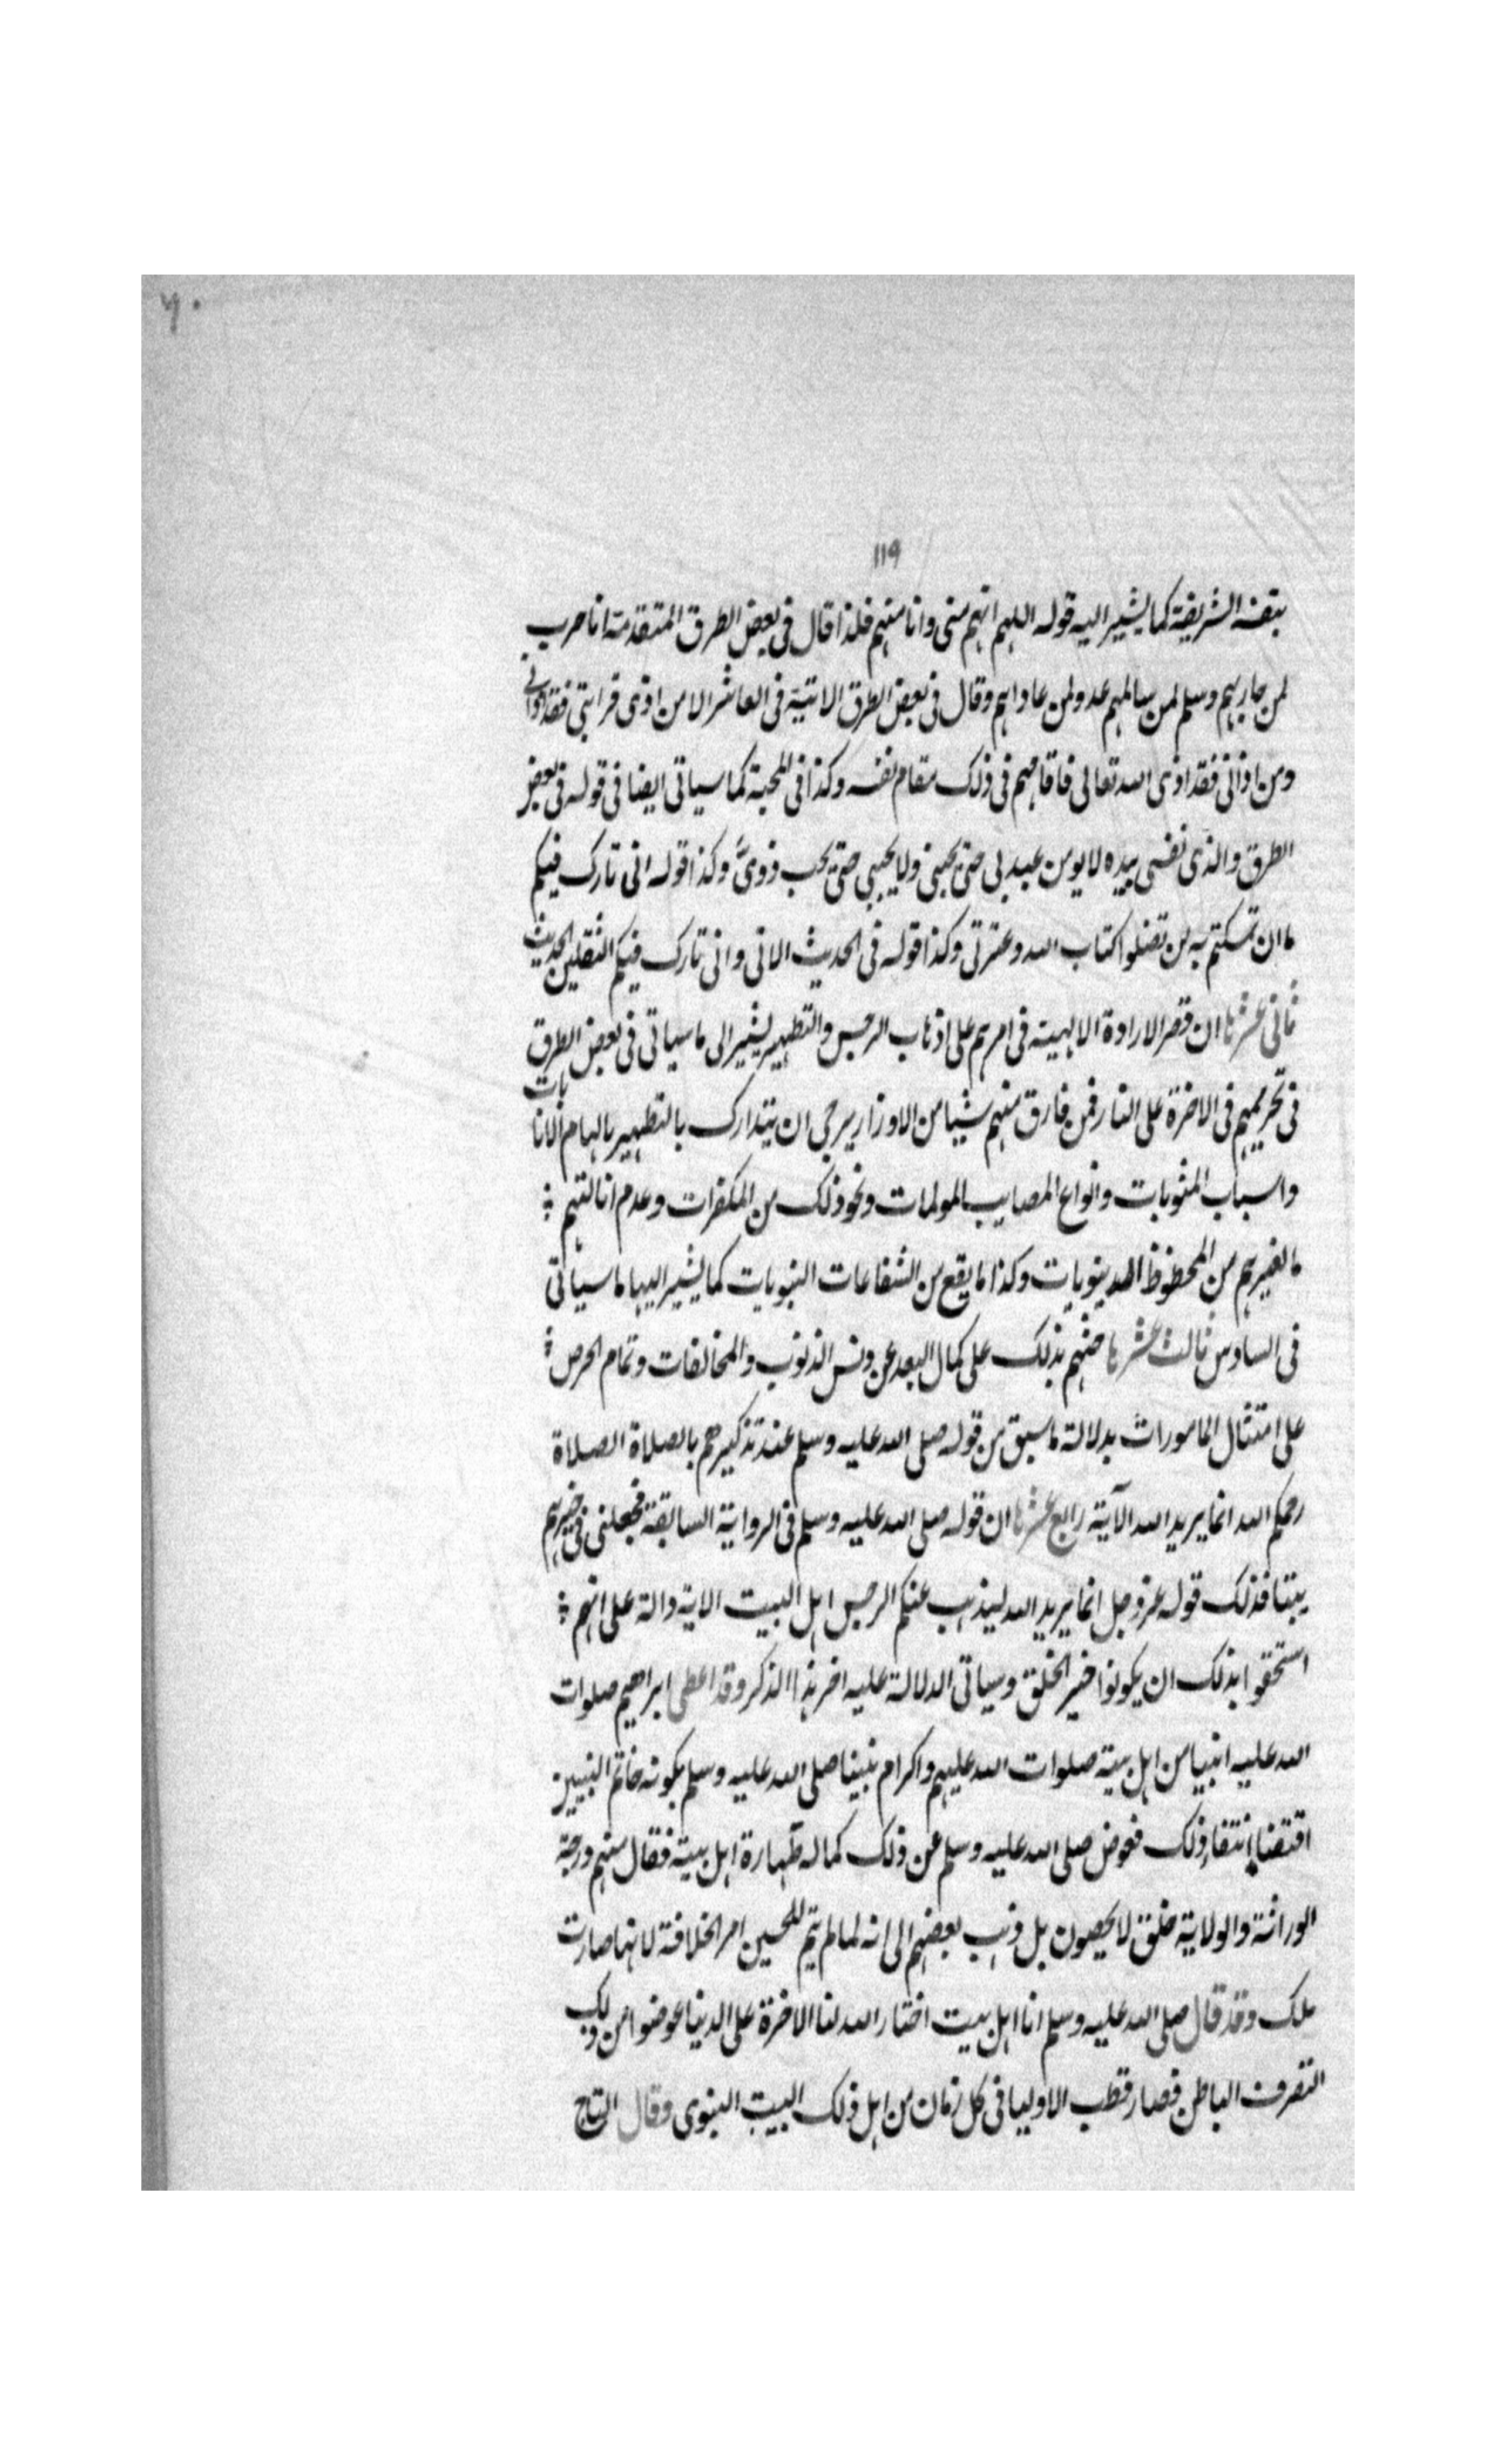 ٦٠
١١٩
بنفسه الشريفة كما يشير اليه قوله اللهم انهم منى وانا منهم فلذا قال فى بعض الطرق المتقدمة انا حرب
لمن حاربهم وسلم لمن سالمهم عدو لمن عاداهم وقال فى بعض الطرق الاتية فى العاشر الا من اذى قرابتى فقد اذانى
ومن اذانى فقد اذى الله تعالى فاقامهم فى ذلك مقام نفسه وكذا فى المحبة كما سياتى ايضا فى قوله فى بعض
الطرق والذى نفسى بيده لا يومن عبد بى حتى يحبنى ولا يحبنى حتى يحب ذوىّ وكذا قوله انى تارك فيكم
ما ان تمسكتم به لن تضلوا كتاب الله وعترتى وكذا قوله فى الحديث الاتى وانى تارك فيكم الثقلين الحديث
ثانى عشرها ان قصر الارادة الالهية فى امرهم على اذهاب الرجس والتطهير يشير الى ما سياتى فى بعض الطرق
فى تحريمهم فى الاخرة على النار فمن قارق منهم شيا من الاوزار يرجى ان يتدارك بالتطهير بالهام الانابات
واسباب المثوبات وانواع المصايب المولمات ونحو ذلك من المكفرات وعدم انالتهم
ما لغيرهم من الحظوظ الدينويات وكذا ما يقع من الشفاعات النبويات كما يشير اليها ما سياتى
فى السادس ثالث عشرها حثهم بذلك على كمال البعد عن دنس الذنوب والمخالفات وتمام الحرص
على امتثال المامورات بدلالة ما سبق من قوله صلى الله عليه وسلم عند تذكيرهم بالصلاة الصلاة
رحمكم الله انما يريد الله الآية رابع عشرها ان قوله صلى الله عليه وسلم فى الرواية السابقة فجعلنى فى خيرهم
بيتا فذلك قوله عز وجل انما يريد الله ليذهب عنكم الرجس اهل البيت الاية دالة على انهم
استحقوا بذلك ان يكونوا خير الخلق وسياتى الدلالة عليه اخر هذا الذكر وقد اعطى ابراهيم صلوات
الله عليه انبيا من اهل بيته صلوات الله عليهم واكرام نبينا صلى الله عليه وسلم بكونه خاتم النبيين
اقتضا انتفا ذلك فعوض صلى الله عليه وسلم عن ذلك كماله طهارة اهل بيته فقال منهم درجة
الوراثة والولاية خلق لا يحصون بل ذهب بعضهم الى انه لما لم يتم للحسين امر الخلافة لانها صارت
ملك وقد قال صلى الله عليه وسلم انا اهل بيت اختار الله لنا الاخرة على الدنيا عوضوا من ذلك
التصرف الباطن فصار قطب الاوليا فى كل زمان من اهل ذلك البيت النبوى وقال التاج